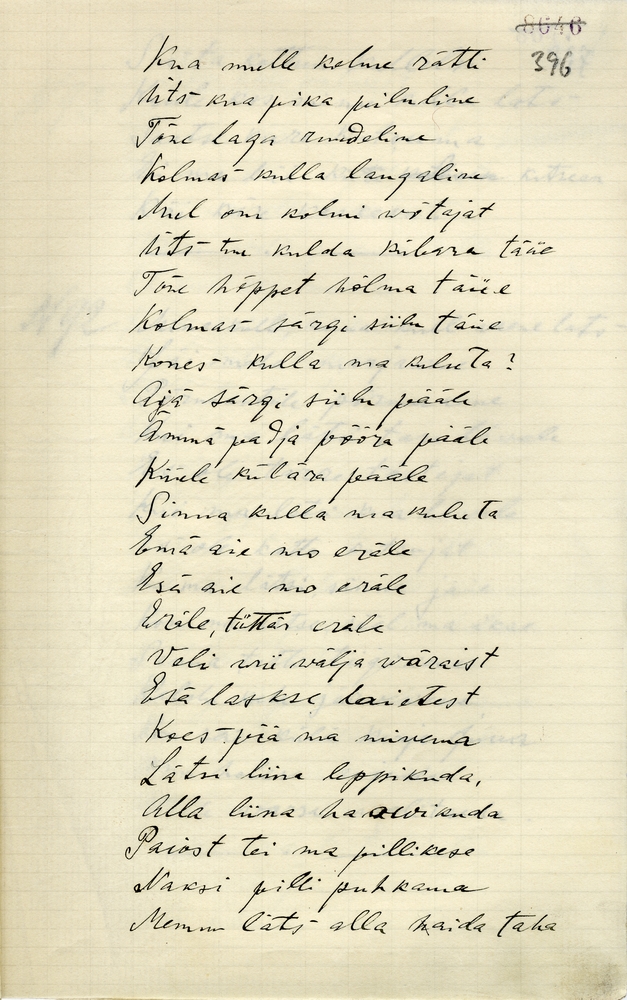 8646
396
Kua mulle kolme rätti
Üts kua pika piluline
Tõne laga ruudeline
Kolmas kulla langaline
Mul om kolmi wõtajat
Üts tu kulda kübara täüe
Tõne hõppet hõlma täüe
Kolmas särgi siilu täüe
Kones kulla ma kuluta?
Äjä särgi siilu pääle
Ämmä padja pööra pääle
Küüle kübära pääle
Sinna kulla ma kuluta
Emä aie mo eräle
Esä aie mo eräle
Eräle, tüttär eräle
Veli wii wälja wäraist
Esä laskse laietest
Koes pää ma minema
Lätsi liina leppikuda,
Alla liina haawikuda
Paiost tei ma pillikese
Naksi pilli puhkama
Memm läts alla haida taha